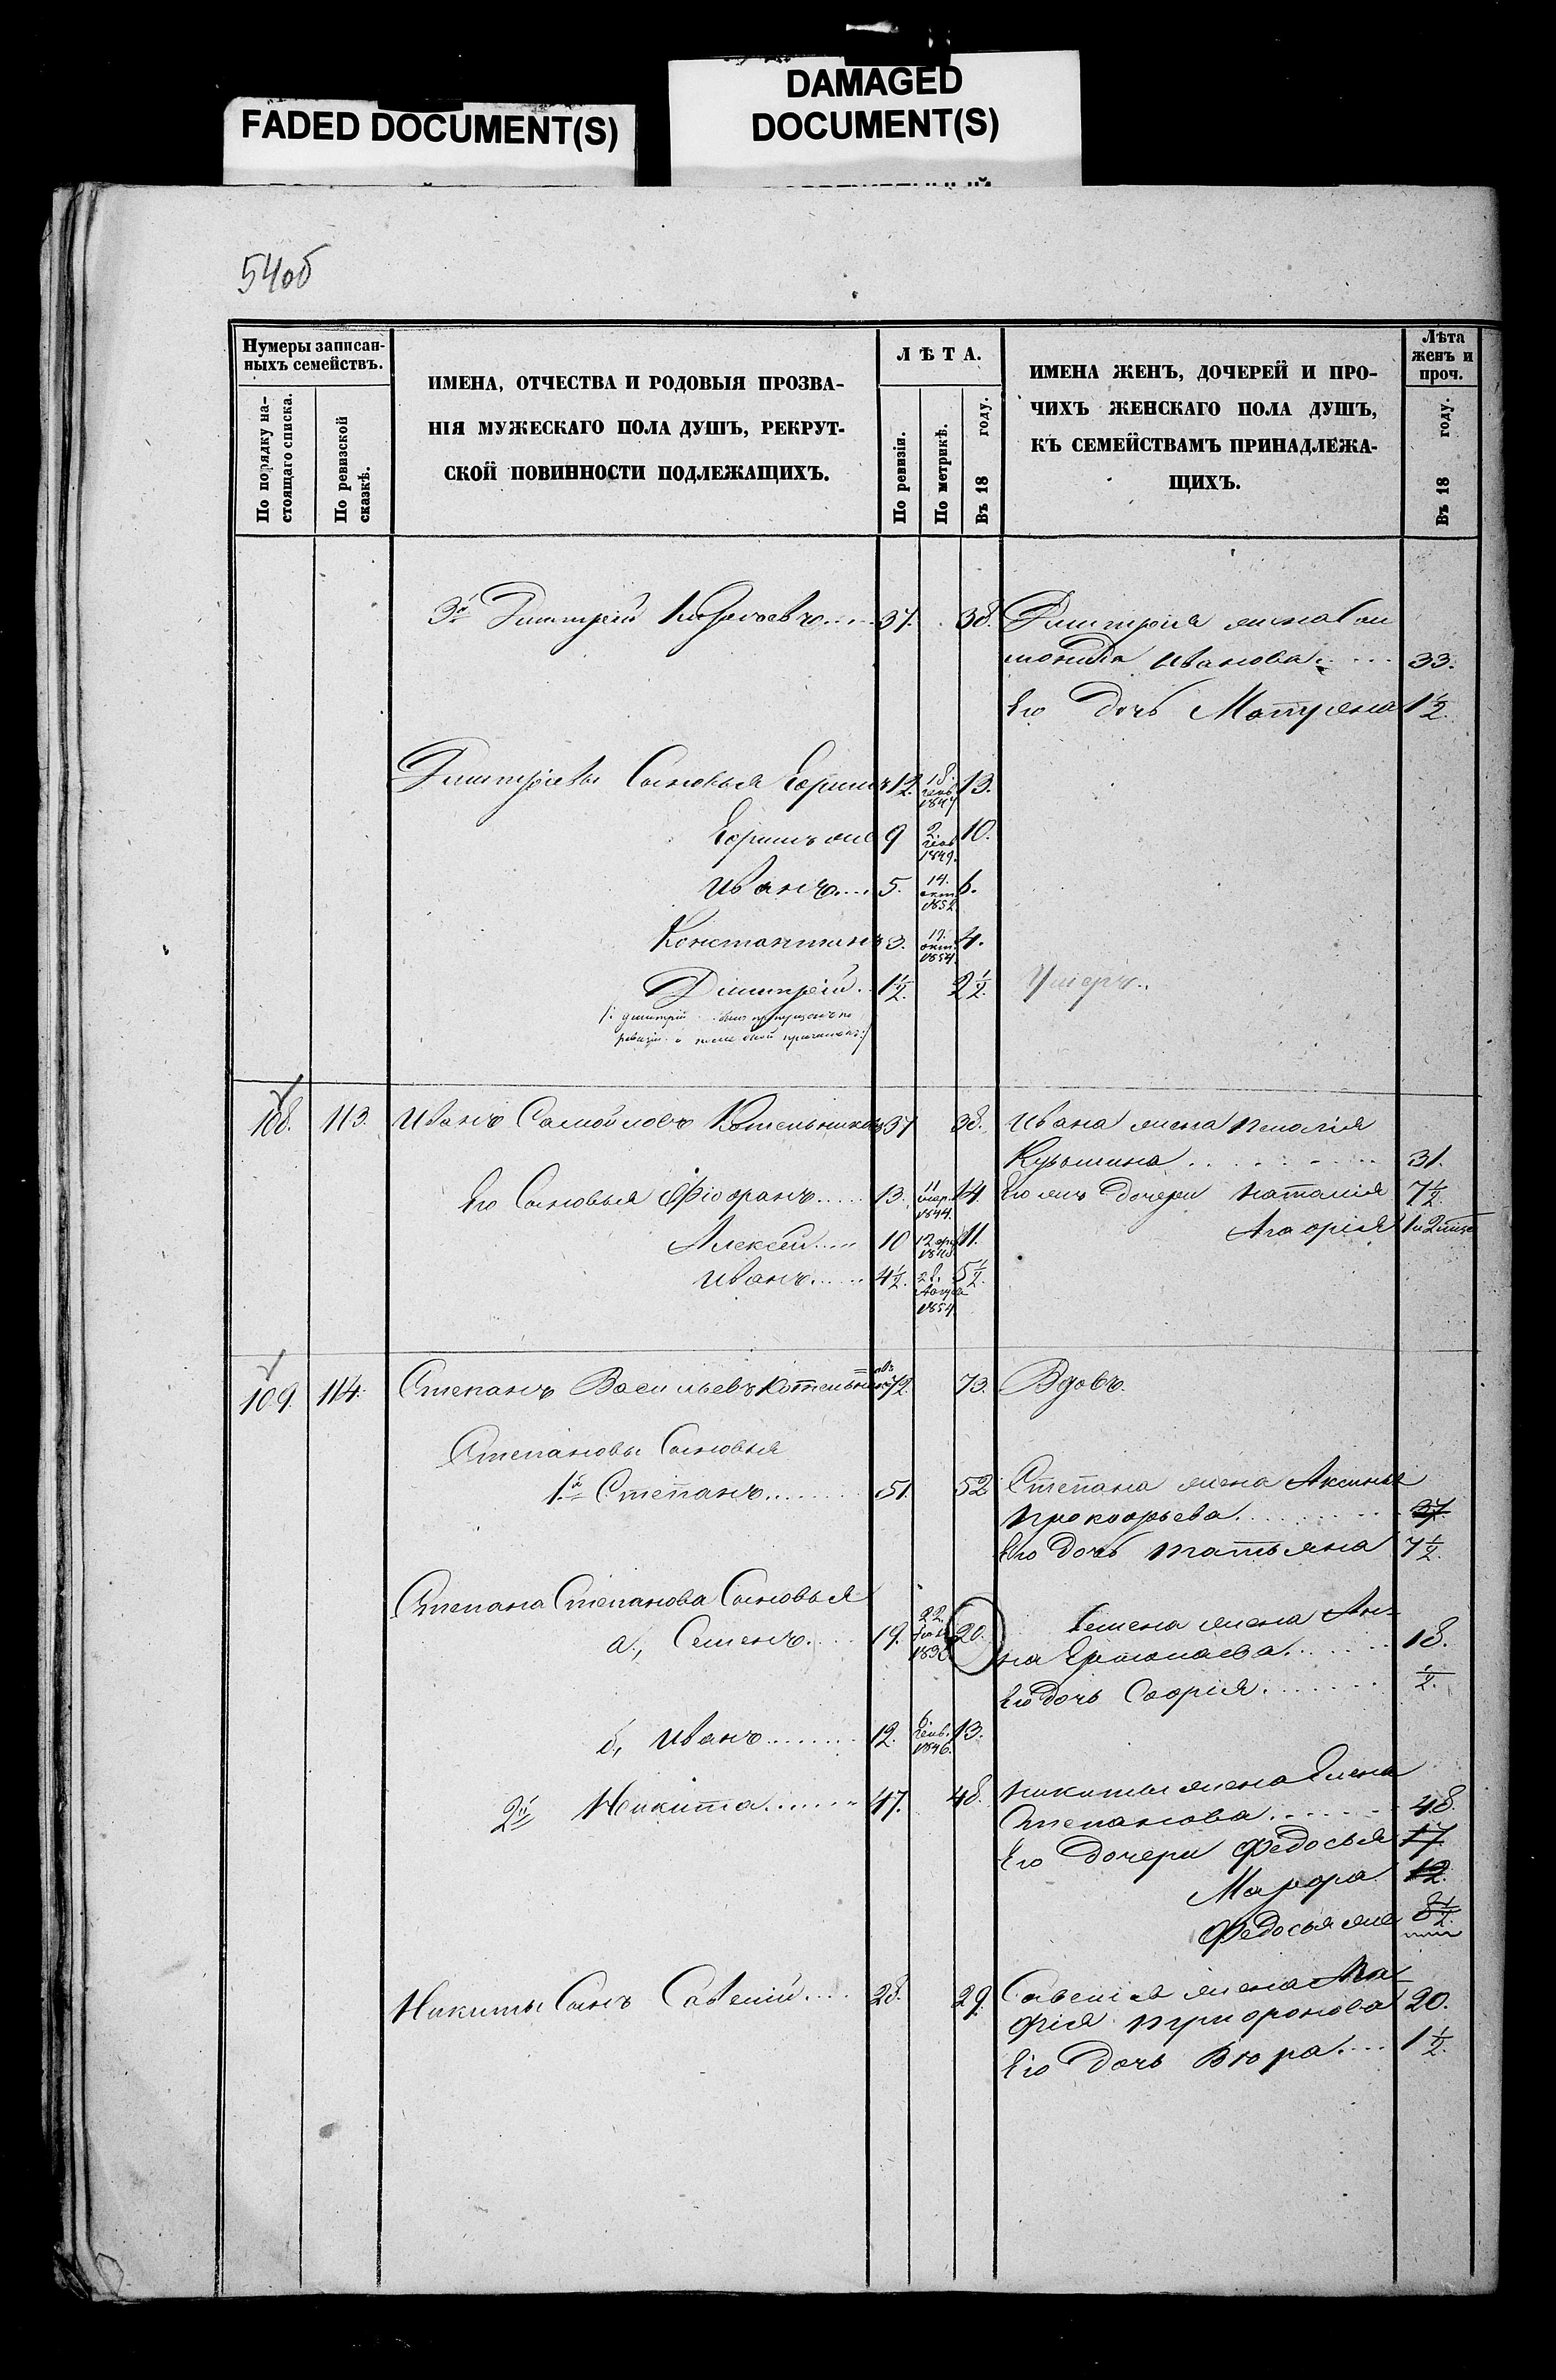 FADED DOCUMENT(S)
DAMAGED
DOCUMENT(S)
54об
Нумеры записан-
ныхъ семействъ.
По порядку на-
стоящаго списка.
По ревизской
сказкѣ.
ИМЕНА, ОТЧЕСТВА И РОДОВЫЯ ПРОЗВА-
НІЯ МУЖЕСКАГО ПОЛА ДУШЪ, РЕКРУТ-
СКОЙ ПОВИННОСТИ ПОДЛЕЖАЩИХЪ.
ЛѢТА.
По ревизіи.
По метрикѣ.
Въ 18 году.
ИМЕНА ЖЕНЪ, ДОЧЕРЕЙ И ПРО-
ЧИХЪ ЖЕНСКАГО ПОЛА ДУШЪ,
КЪ СЕМЕЙСТВАМЪ ПРИНАДЛЕЖА-
ЩИХЪ.
Лѣта
женъ и
проч.
Въ 18 году.
3й Дмитрій 37. 38. Дмитрія жена Со
ломонида Иванова 33.
Его дочь Матрена 1½
Дмитріевы Сыновья Ефимъ 12. 18. генв. 1847 13.
Ефимъ же 9 2. генв 1849. 10.
Иванъ 5. 14. окт. 1852 6.
Константинъ 3. 17. окт. 1854. 4.
Димитрій 1½ 2½. Умеръ.
108. 113. Иванъ Самойловъ Котельниковъ 37 38. Ивана жена Пелагія
Кузьмина 31.
Его Сыновья Фіофанъ 13. 11 мар. 1844. 14. Его же дочери Наталія 7½
Агафія
Алексей 10 11.
Иванъ 4½. 28. Августа 1854. 5½.
109. 114. Степанъ Васильевъ Котельниковъ 72. 73. Вдовъ.
Степановы Сыновья
1й Степанъ 51. 52 Степана жена Аксинья
Прокофьева 37.
Его дочь Татьяна 7½.
Степана Степанова Сыновья
а, Семенъ 19. 22. 20. Семена жена Ан-
на Ермолаева 18.
Его дочь Софія ½.
б, Иванъ 12. 6. генв. 1846. 13.
2й Никита 47. 48. Никиты жена Елена
Степанова 48.
Его дочери Федосья 17.
Марфа 12.
Федосья же 8½.
Никиты Сынъ Савелій 28. 29. Савелія жена Ма-
фія Трифонова 20.
Его дочь 1½.